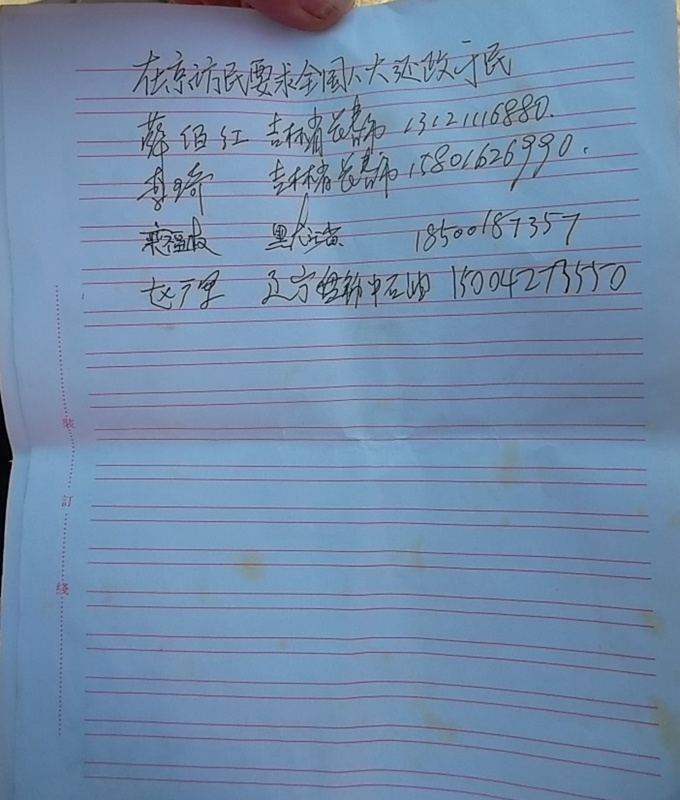 在京访民要求全国人大还政于民
薛佰红 吉林省长春市 13121116880.
李琦 吉林省长春市 15801626990.
栾福 黑龙江省 18500187357
赵广军 辽宁盘锦中石油 15004273550
装
訂
綫